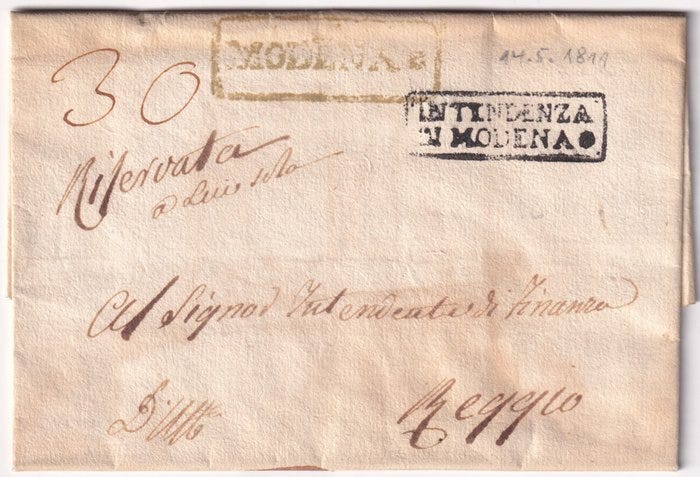 MODENA
14.5.1811
30
INTENDENZA
DI MODENA
Riservata
a Lui solo
Al Signor Intendente di Finanza
Reggio